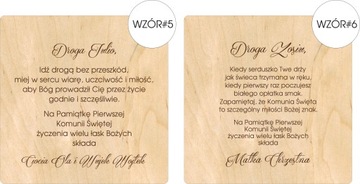 WZÓR#5
Droga Julio,
Idź drogą bez przeszkód,
miej w sercu wiarę, uczciwość i miłość,
aby Bóg prowadził Cię przez życie
godnie i szczęśliwie.
Na Pamiątkę Pierwszej
Komunii Świętej
życzenia wielu łask Bożych
składa
Ciocia Ola i Wujek Wojtek
WZÓR#6
Droga Zosiu,
Kiedy serduszko Twe drży
jak świeca trzymana w ręku,
kiedy pierwszy raz poczujesz
białego opłatka smak.
Zapamiętaj, że Komunia Święta
to szczególny miłości Bożej znak.
Na Pamiątkę Pierwszej
Komunii Świętej
życzenia wielu łask Bożych
składa
Matka Chrzestna